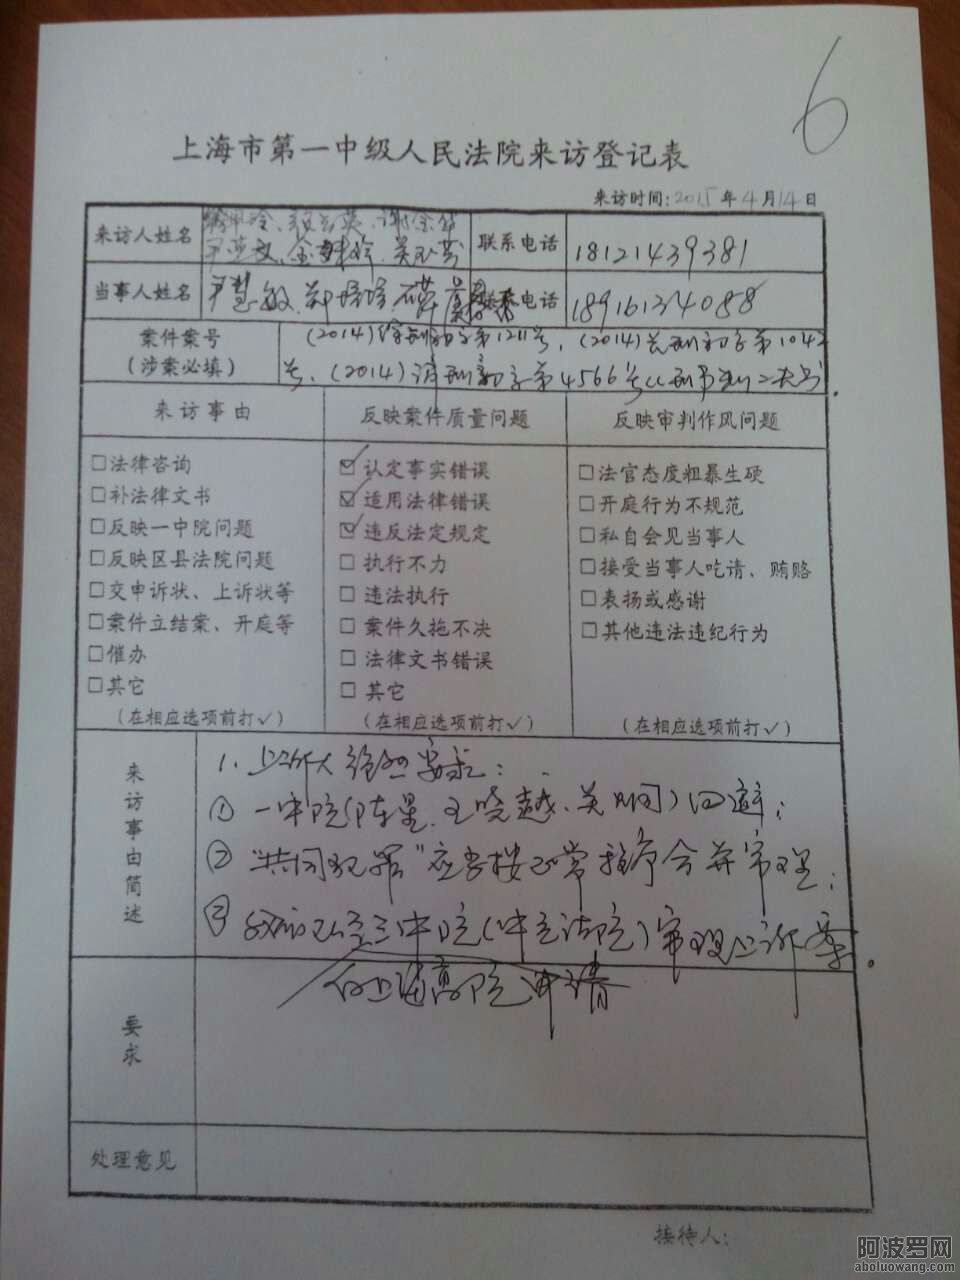 6
上海市第一中级人民法院来访登记表
来访时间:2015年4月14日
来访人姓名
联系电话 18121439381
当事人姓名 尹慧敏 郑培培
电话 18916134088
案件案号 (2014)徐刑初字第1211号,(2014)长刑初字第1042
(涉案必填) 号、(2014)浦刑初字第4566号
来访事由 反映案件质量问题 反映审判作风问题
□法律咨询
□补法律文书
□反映一中院问题
□反映区县法院问题
□交申诉状、上诉状等
□案件立结案、开庭等
□催办
□其它
(在相应选项前打✓)
☑认定事实错误
☑适用法律错误
☑违反法定规定
□执行不力
□违法执行
□案件久拖不决
□法律文书错误
□其它
(在相应选项前打✓)
□法官态度粗暴生硬
□开庭行为不规范
□私自会见当事人
□接受当事人吃请、贿赂
□表扬或感谢
□其他违法违纪行为
(在相应选项前打✓)
来访事由简述
1、上诉人 要求:
① 一中院(陈星、王晓越、 )回避;
② “共同犯罪”应当按正常程序合并审理;
③ 三中院( 法院)审理上诉案。
向上海高院申请
要求
处理意见
接待人:
阿波罗网
aboluowang.com